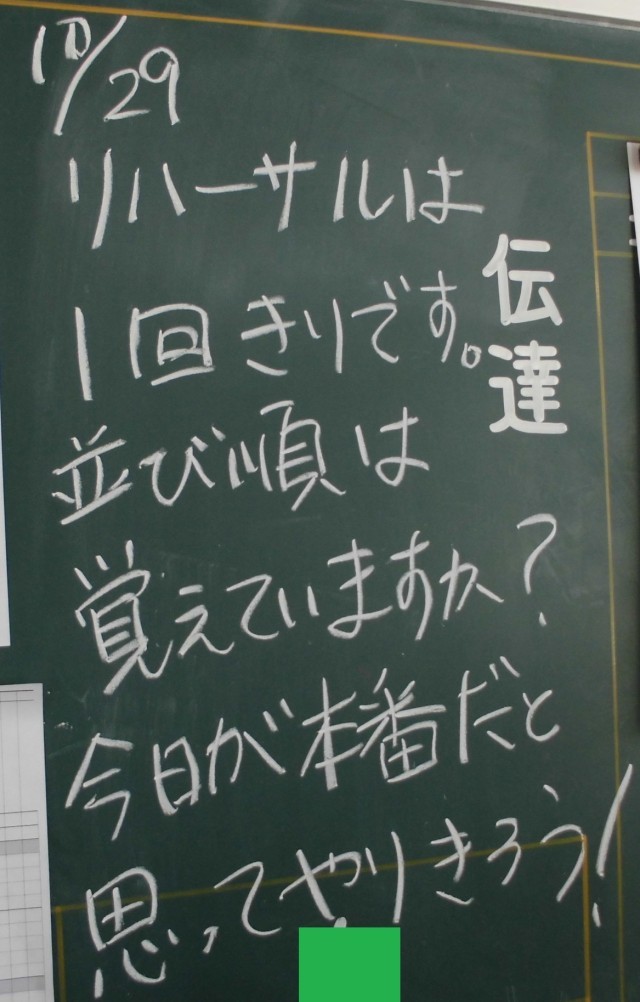 10/29
リハーサルは
1回きりです。
並び順は
覚えていますか?
今日が本番だと
思ってやりきろう!
伝達